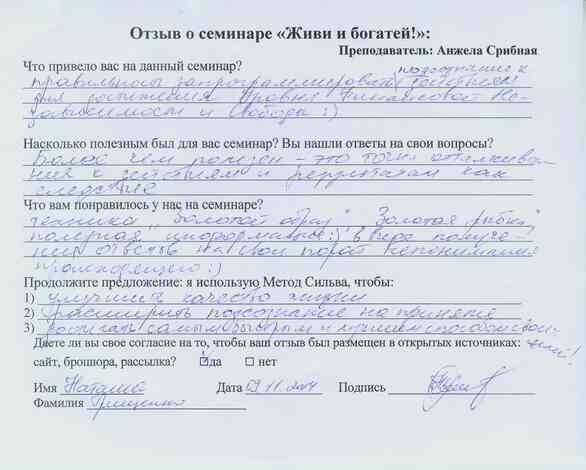 Отзыв о семинаре «Живи и богатей!»:
Преподаватель: Анжела Срибная
Что привело вас на данный семинар?
подсознание к
правильно запрограммировать действиям
для достижения уровня Финансовой Не-
зависимости и Свободы :)
Насколько полезным был для вас семинар? Вы нашли ответы на свои вопросы?
Более чем полезен - это точка отталкива-
ния к действиям и результатам как
следствие
Что вам понравилось у нас на семинаре?
техника "Золотой образ" "Золотая рыбка"
полезная информация :) в виде получе-
ния ответов на свои непонимания
происходящего :)
Продолжите предложение: я использую Метод Сильва, чтобы:
1) улучшить качество жизни
2) расширить подсознание на принятие
3) достигать самым быстрым и лучшим способом свои-
Даете ли вы свое согласие на то, чтобы ваш отзыв был размещен в открытых источниках:
сайт, брошюра, рассылка? да нет
Имя Наталия Дата 09.11.2014 Подпись
Фамилия